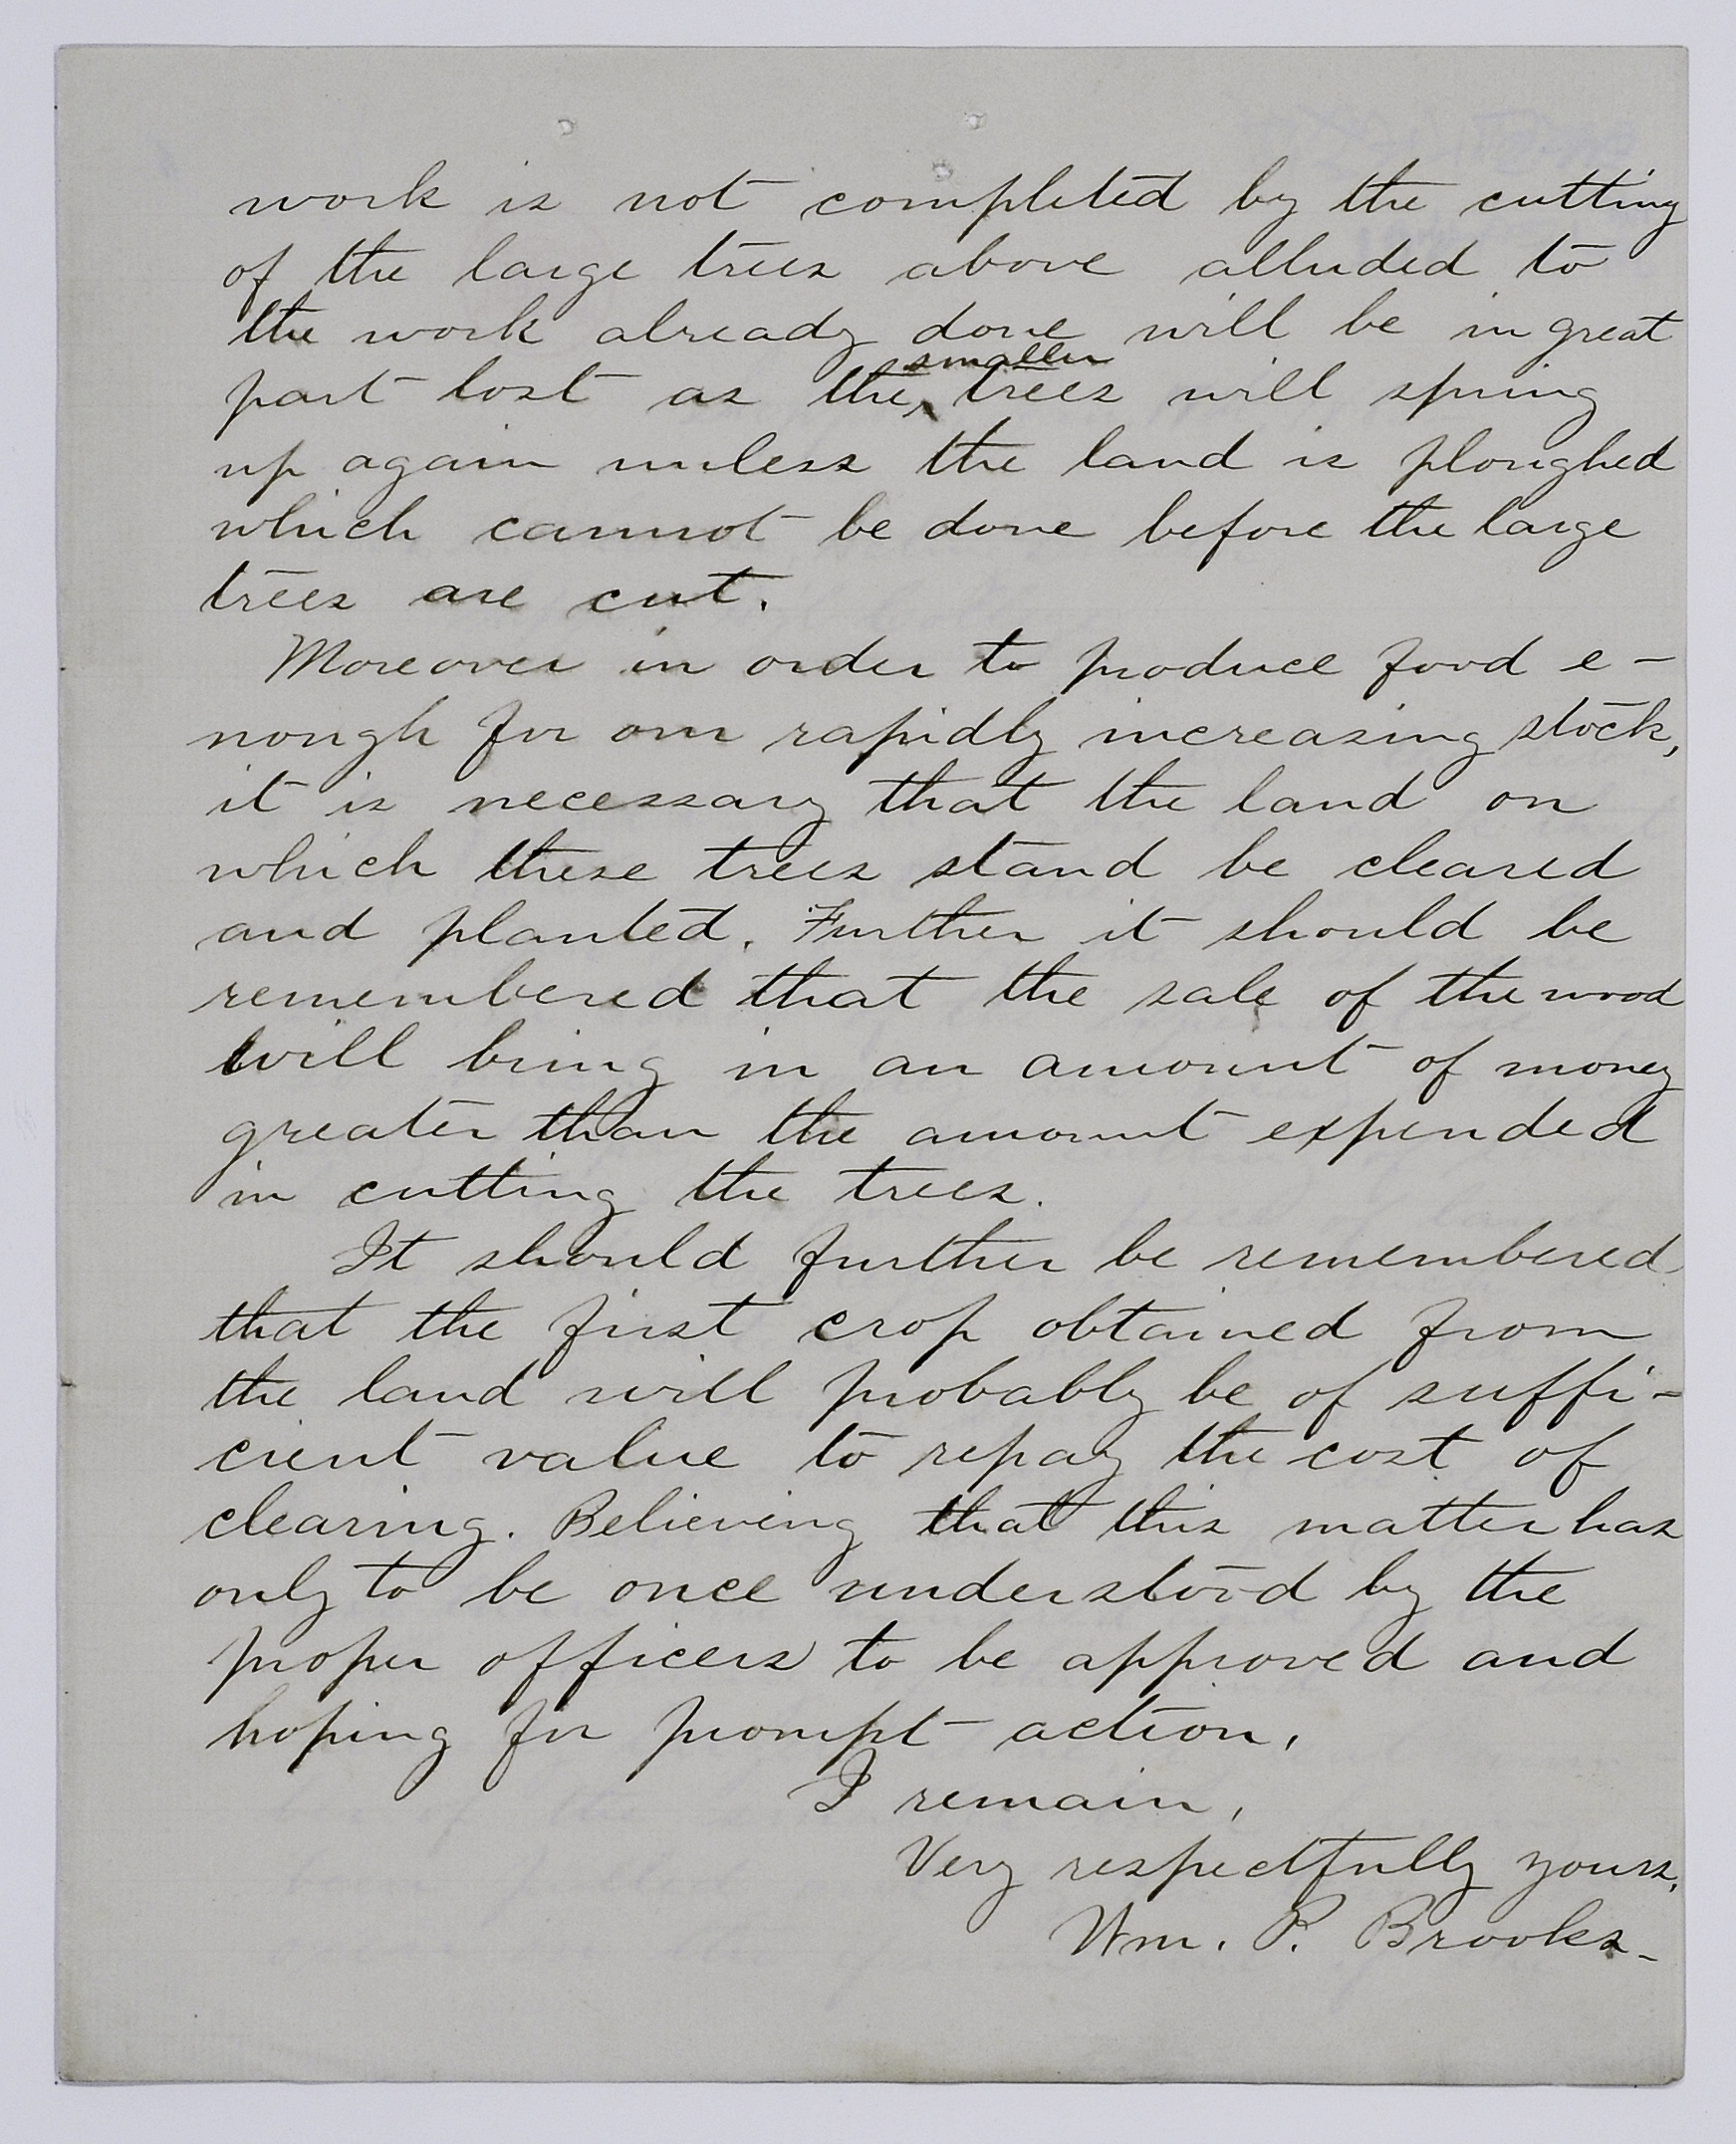 work is not completed by the cutting
of the large trees above alluded to
the work already done will be in great
part lost as the smaller trees will spring
up again unless the land is ploughed
which cannot be done before the large
trees are cut.
Moreover in order to produce food e-
nough for our rapidly increasing stock,
it is necessary that the land on
which these trees stand be cleared
and planted. Further it should be
remembered that the sale of the wood
will bring in an amount of money
greater than the amount expended
in cutting the trees.
It should further be remembered
that the first crop obtained from
the land will probably be of suffi-
cient value to repay the cost of
clearing. Believing that this matter has
only to be once understood by the
proper officers to be approved and
hoping for prompt action,
I remain,
Very respectfully yours,
Wm. P. Brooks-